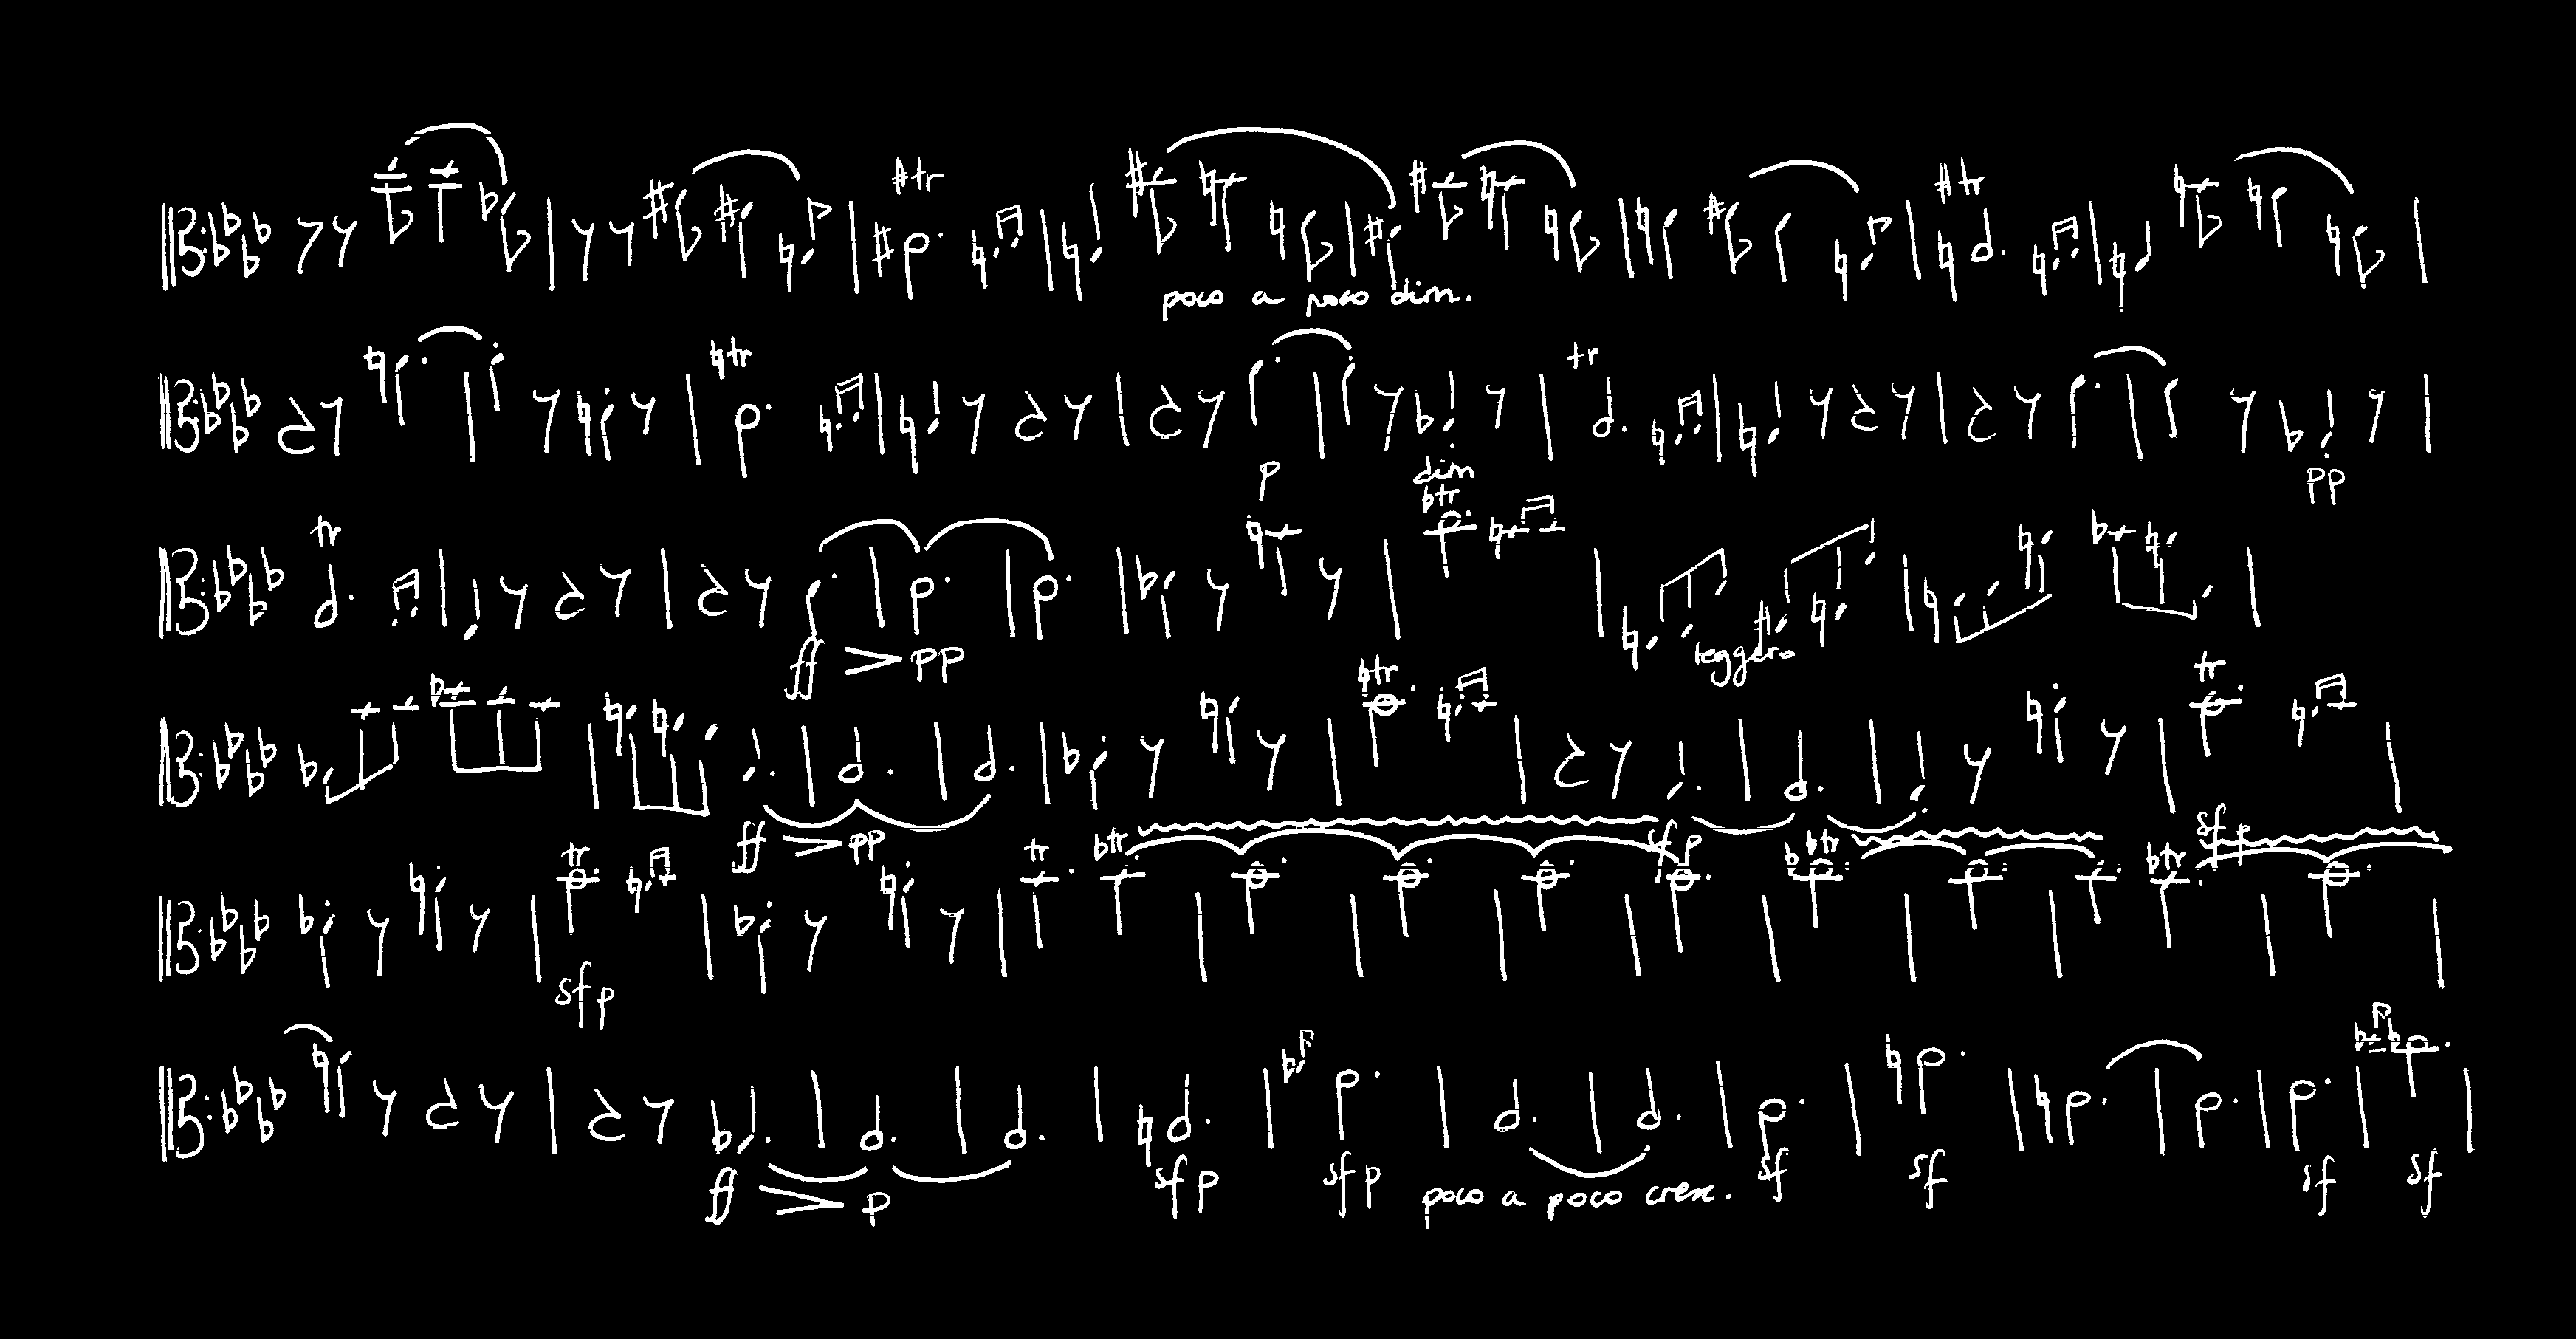 tr tr
poco a poco dim.
tr tr
p dim pp
tr tr
leggero
ff pp
tr tr
ff pp sfp sfp
tr tr tr tr tr
sfp
ff p sfp sfp poco a poco cresc. sf sf sf sf